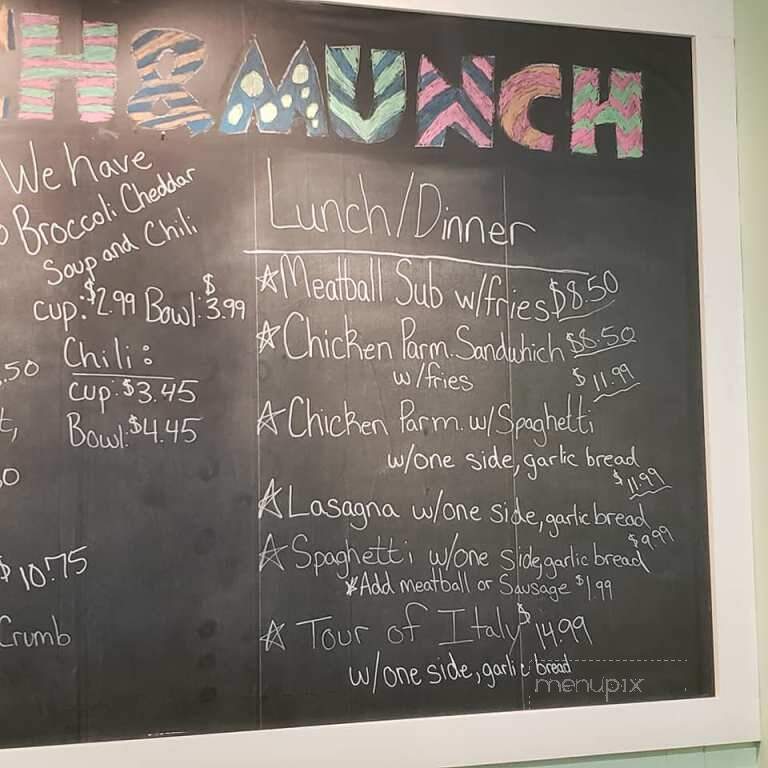 H & MUNCH
We have
Broccoli Cheddar
Soup and Chili
cup: $2.99 Bowl: $3.99
Chili:
cup: $3.45
Bowl: $4.45
.50
t,
0
$10.75
Crumb
Lunch/Dinner
☆Meatball Sub w/fries $8.50
☆Chicken Parm. Sandwhich $8.50
w/fries
$11.99
☆Chicken Parm. w/Spaghetti
w/one side, garlic bread
$11.99
☆Lasagna w/one side, garlic bread
$9.99
☆Spaghetti w/one side, garlic bread
*Add meatball or Sausage $1.99
☆Tour of Italy $14.99
w/one side, garlic bread
menupix